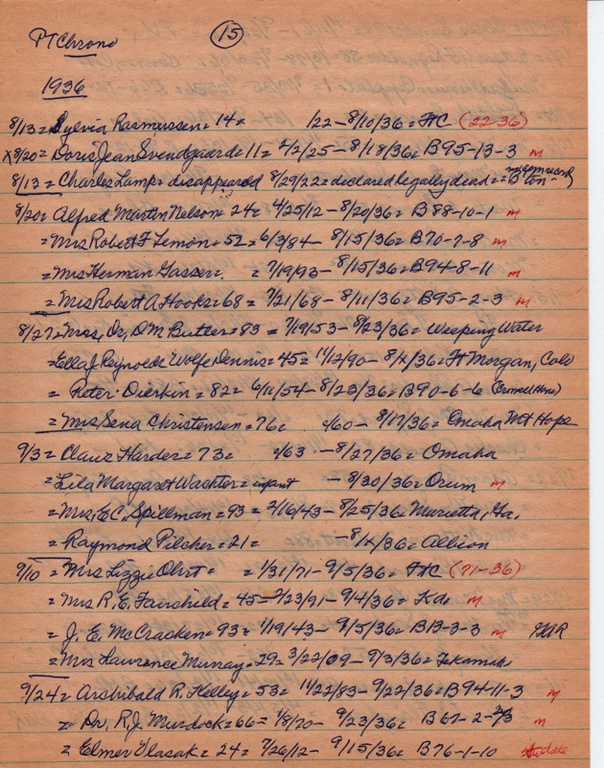 PT Chrono (15)
1936
8/13 = Sylvia Rasmussen = 14 = 1/22 - 8/10/36 = HC (22-36)
x8/20 = Doris Jean Svendgaarde 11 = 2/2/25 - 8/18/36 = B95-13-3 m
8/13 = Charles Lamp = disappeared 8/29/22 = declared legally dead =
8/20 = Alfred Martin Nelson = 24 = 4/25/12 - 8/20/36 = B88-10-1 m
= Mrs Robert F Lemon = 52 = 6/3/84 - 8/15/36 = B70-7-8 m
= Mrs Herman Gasser = 7/19/93 - 8/15/36 = B94-8-11 m
= Mrs Robert A Hooks = 68 = 7/21/68 - 8/11/36 = B95-2-3 m
8/27 = Mrs, Dr, D M Butler = 83 = 7/19/53 - 8/23/36 = Weeping Water
= Ella J Reynolds Wolfe Dennis = 45 = 11/12/90 - 8/x/36 = Ft Morgan, Colo
= Peter Dierkin = 82 = 6/11/54 - 8/23/36 = B90-6-6 (Crowell Home)
= Mrs Sena Christensen = 76 = /60 - 8/17/36 = Omaha Mt Hope
9/3 = Claus Harder = 73 = /63 - 8/27/36 = Omaha
= Lila Margaret Wachter = infant - 8/30/36 = Orum m
= Mrs, E C, Spillman = 93 = 2/16/43 - 8/25/36 = Marietta, Ga,
= Raymond Pilcher = 21 = - 8/x/36 = Albion
9/10 = Mrs Lizzie Ohrt = = 1/31/71 - 9/5/36 = HC (71-36)
= Mrs R. E. Fairchild = 45 = 7/23/91 - 9/4/36 = Ka. m
= J. E. McCracken = 93 = 1/19/43 - 9/5/36 = B13-3-3 m GAR
= Mrs Lawrence Murray = 29 = 3/22/09 - 9/3/36 = Tekamah
9/24 = Archibald R. Kelley = 53 = 11/22/83 - 9/22/36 = B94-11-3 m
= Dr. R. J. Murdock = 66 = 1/8/70 - 9/23/36 = B67-2-3 m
= Elmer Vlasak = 24 = 7/26/12 - 9/15/36 = B76-1-10